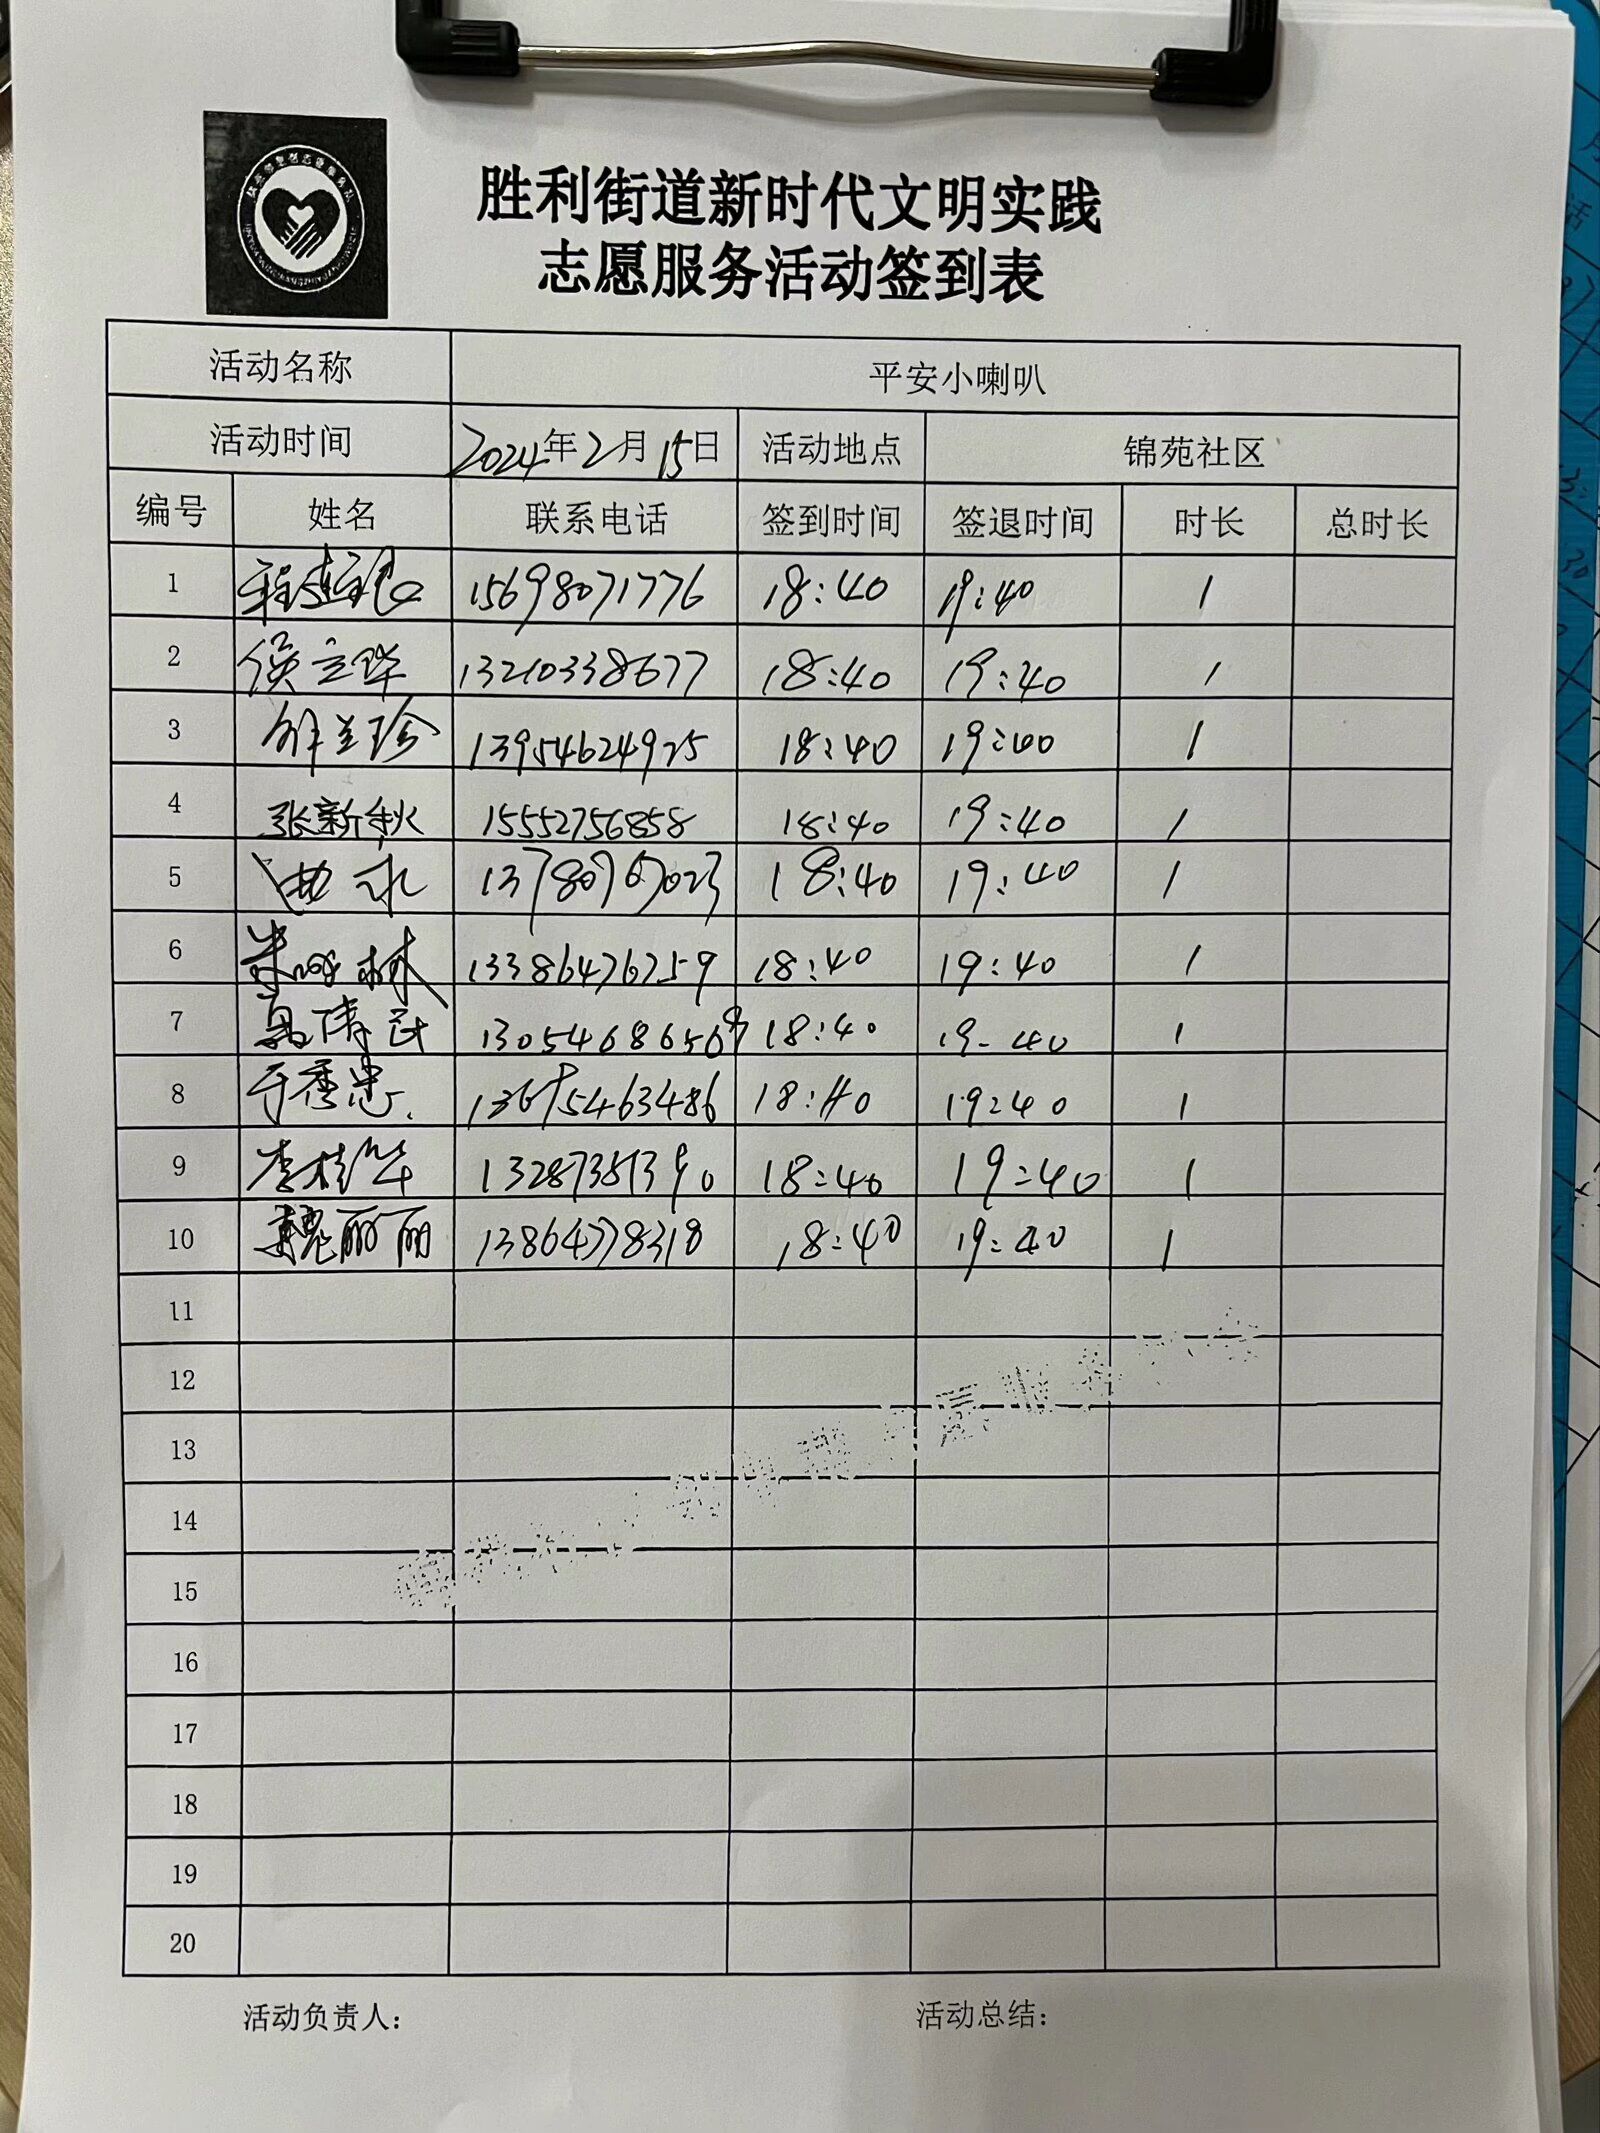 胜利街道新时代文明实践
志愿服务活动签到表
活动名称 平安小喇叭
活动时间 2024年2月15日 活动地点 锦苑社区
编号 姓名 联系电话 签到时间 签退时间 时长 总时长
1 15698071776 18:40 19:40 1
2 侯立晔 13210338677 18:40 19:40 1
3 解兰珍 13954624925 18:40 19:40 1
4 张新秋 15552756858 18:40 19:40 1
5 曲永 18:40 19:40 1
6 13386476759 18:40 19:40 1
7 13054686569 18:40 19-40 1
8 于秀忠 13675463486 18:40 19:40 1
9 李桂华 13287351390 18:40 19:40 1
10 魏丽丽 13864778318 18:40 19:40 1
11
12
13
14
15
16
17
18
19
20
活动负责人: 活动总结: